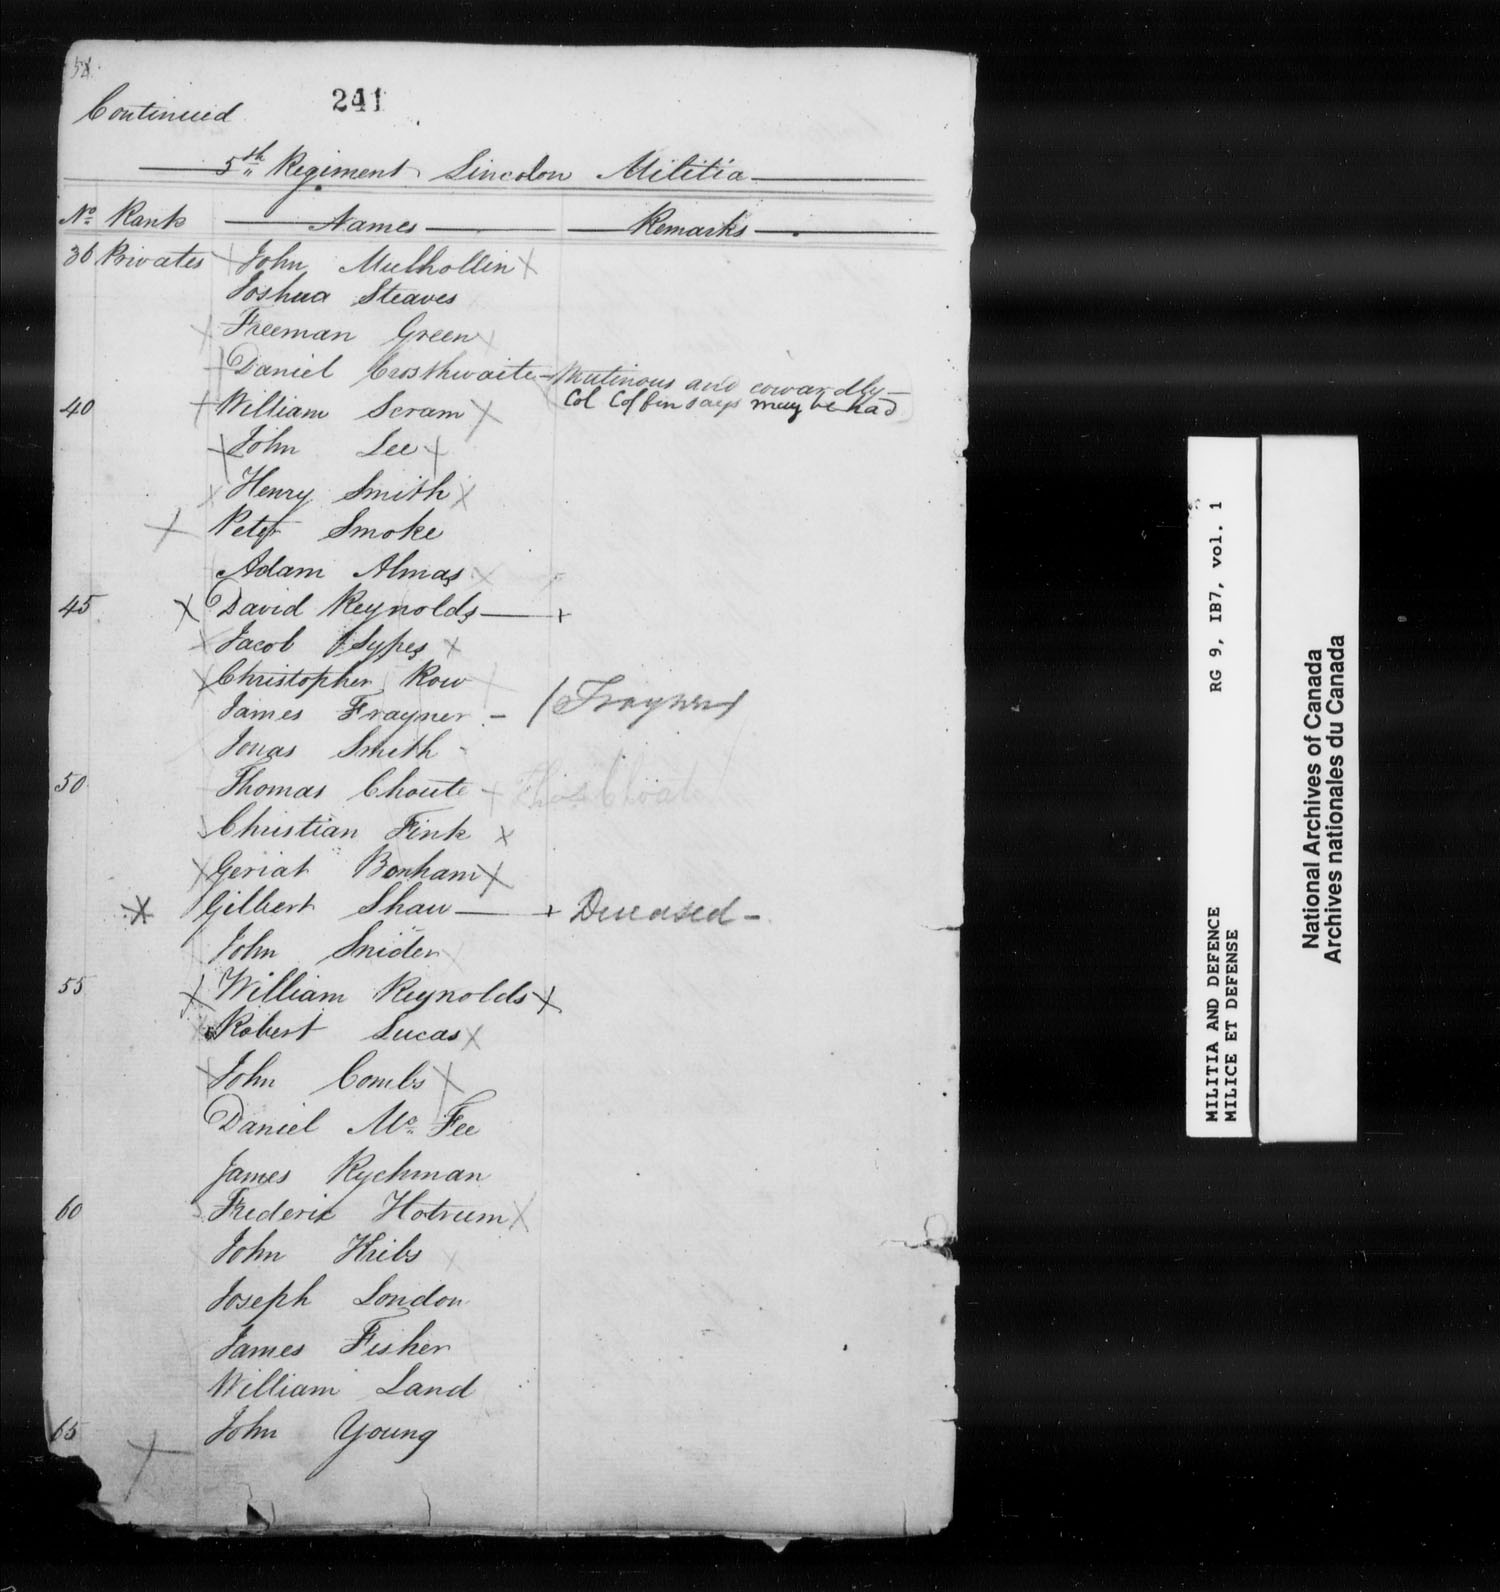 58
Continued
241
5th Regiment Lincolon Militia
No. Rank Names Remarks
36 Privates John Mulhollin
Joshua Steaves
Freeman Green
Daniel Crosthwaite - Mutinous and cowardly -
40 William Scram Col Coffin says may be had
John Lee
Henry Smith
Peter Smoke
Adam Almas
45 David Reynolds
Jacob Sypes
Christopher Row
James Frayner - (Frayner)
Jonas Smith
50 Thomas Choute Thos Choat
Christian Fink
Geriat Bonham
Gilbert Shaw Deceased -
John Snider
55 William Reynolds
Robert Lucas
John Combs
Daniel Mc Fee
James Rychman
60 Frederic Hotrum
John Kribs
Joseph London
James Fisher
William Land
65 John Young
RG 9, IB7, vol. 1
MILITIA AND DEFENCE
MILICE ET DEFENSE
National Archives of Canada
Archives nationales du Canada